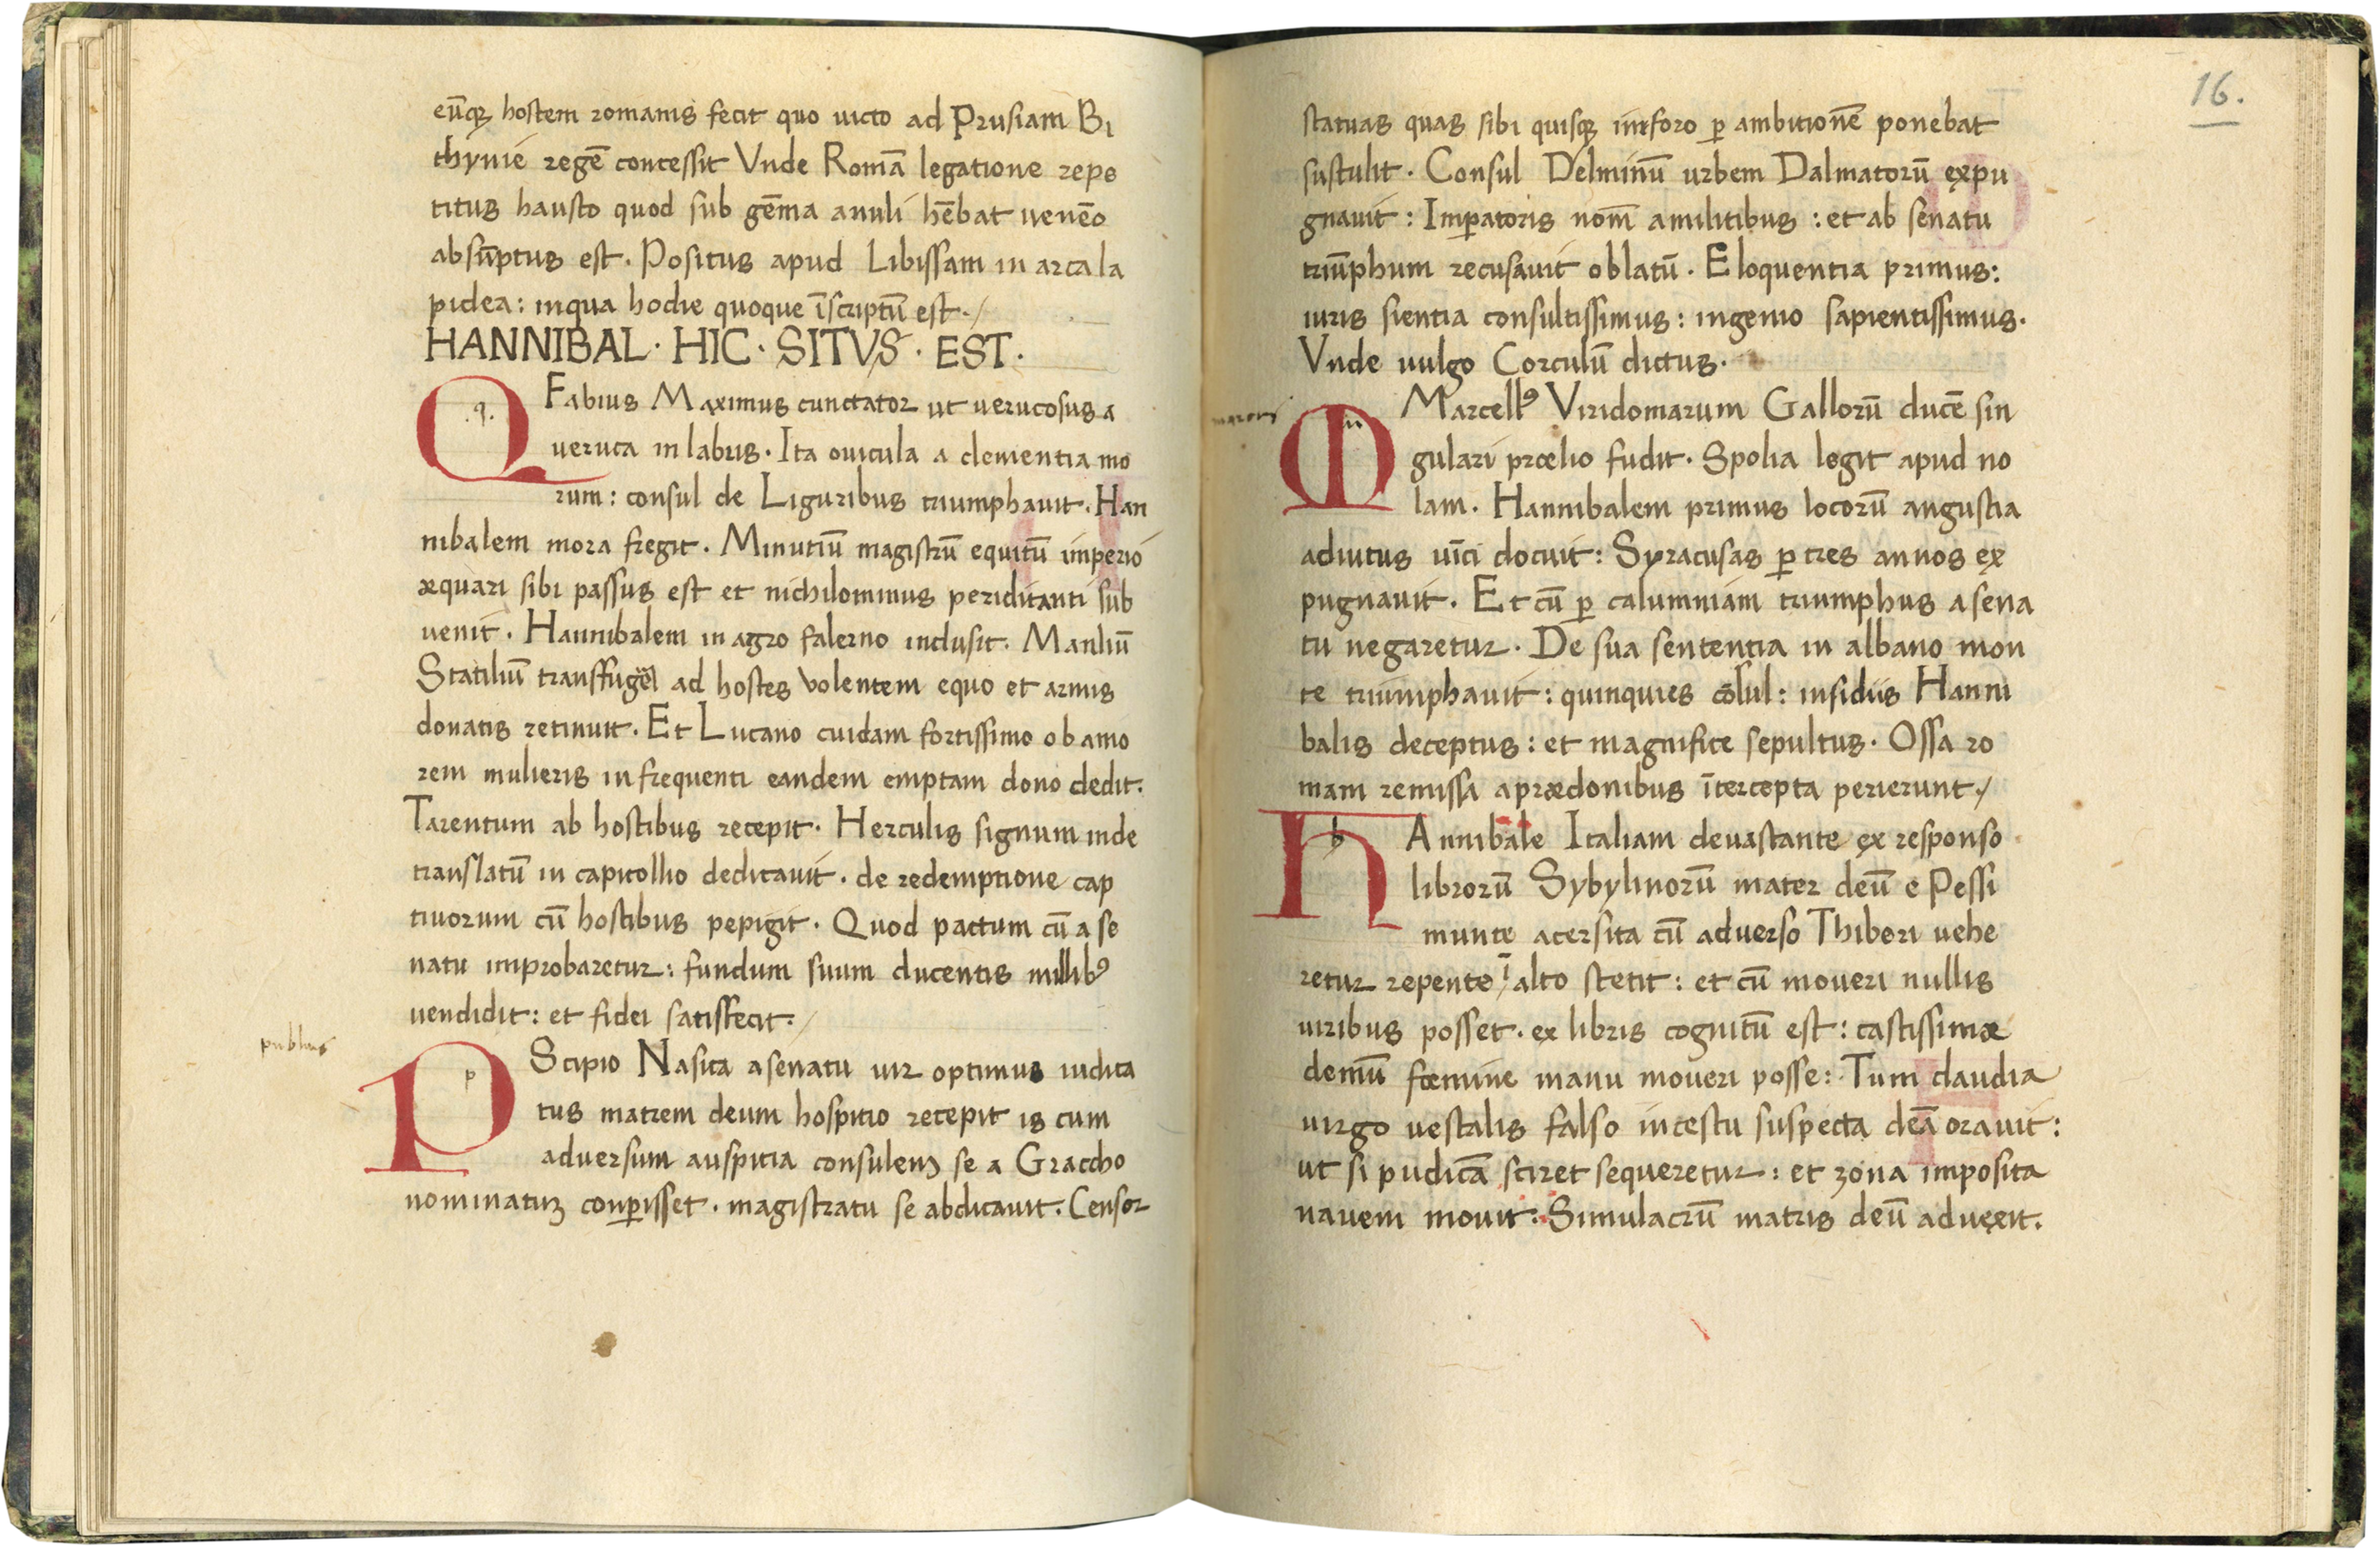 eūq̨ hostem romanis fecit quo uicto ad Prusiam Bi
thynie regē concessit Vnde Romā legatione repe
titus hausto quod sub gēma anuli hēbat uenēo
absūptus est. Positus apud Libissam in arca la
pidea: inqua hodie quoque īscriptū est./
HANNIBAL · HIC · SITVS · EST ·
Q .q. Fabius Maximus cunctator ut uerucosus a
ueruca in labris. Ita ouicula a clementia mo
rum: consul de Liguribus triumphauit. Han
nibalem mora fregit. Minutiū magistrū equitū imperio
æquari sibi passus est et nichilominus periditanti sub
uenit. Hannibalem in agro falerno inclusit. Manliū
Statiliū transfugē ad hostes volentem equo et armis
donatis retinuit. Et Lucano cuidam fortissimo ob amo
rem mulieris in frequenti eandem emptam dono dedit.
Tarentum ab hostibus recepit. Herculis signum inde
translatū in capitollio dedicauit. de redemptione cap
tiuorum cū hostibus pepigit. Quod pactum cū a se
natu improbaretur: fundum suum ducentis millibꝰ
uendidit: et fidei satisfecit./
publius
P p Scipio Nasica asenatu uir optimus iudica
tus matrem deum hospitio recepit is cum
aduersum auspitia consulemꝫ se a Graccho
nominatuꝫ conꝑisset. magistratu se abdicauit. Censor
16.
statuas quas sibi quisq̨ inforo ꝑ ambitionē ponebat
sustulit. Consul Delminū urbem Dalmatorū expu
gnauit: Imꝑatoris nom̄ amilitibus: et ab senatu
triūphum recusauit oblatū. Eloquentia primus:
iuris sientia consultissimus: ingenio sapientissimus.
Vnde uulgo Corculū dictus.
M m Marcellꝰ Viridomarum Gallorū ducē sin
gulari prœlio fudit. Spolia legit apud no
lam. Hannibalem primus locorū angustia
adiutus uīci docuit: Syracusas ꝑ tres annos ex
pugnauit. Et cū ꝑ calumniam triumphus asena
tu negaretur. De sua sententia in albano mon
te triumphauit: quinquies cōsul: insidiis Hanni
balis deceptus: et magnifice sepultus. Ossa ro
mam remissa aprædonibus ītercepta perierunt./
H h Annibale Italiam deuastante ex responso
librorū Sybylinorū mater deū e Pessi
munte acersita cū aduerso Thiberi uehe
retur repente ī alto stetit: et cū moueri nullis
uiribus posset. ex libris cognitū est: castissimæ
demū fœmine manu moueri posse: Tum claudia
uirgo uestalis falso incestu suspecta deā orauit:
ut si pudicā sciret sequeretur: et zona imposita
nauem mouit. Simulacrū matris deū aduexit.